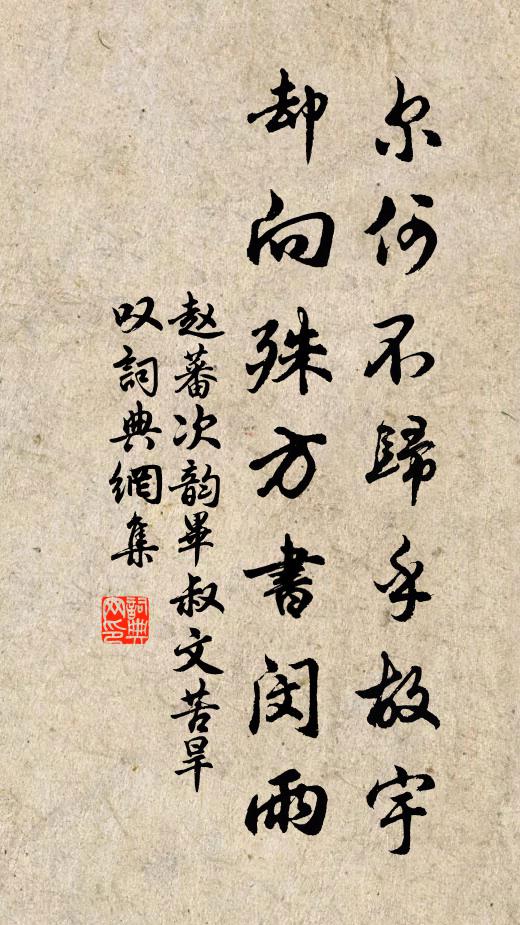 尔何不歸乎故宇
却向殊方書闵雨
赵蕃次韵畢叔文苦旱
叹詞典網集
詞典
网印